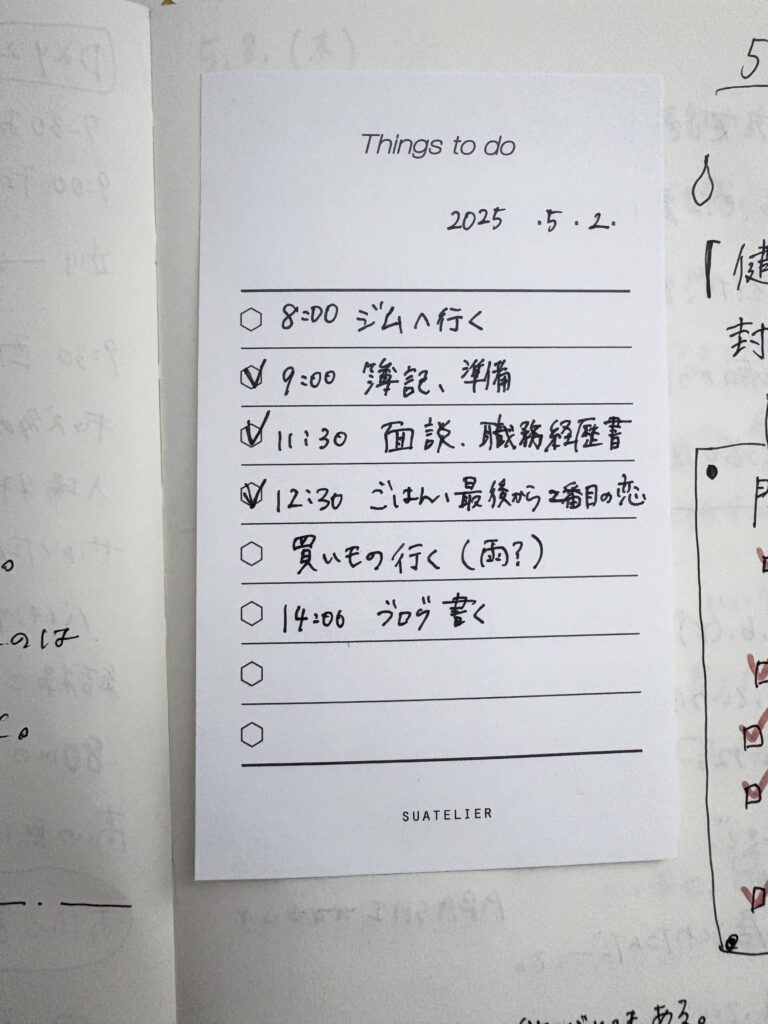 Things to do
2025 .5.2.
8:00 ジムへ行く
9:00 簿記、準備
11:30 面談、職務経歴書
12:30 ごはん、最後から2番目の恋
買いもの行く(雨?)
14:00 ブログ書く
SUATELIER
5
「健
封
のは
ある。